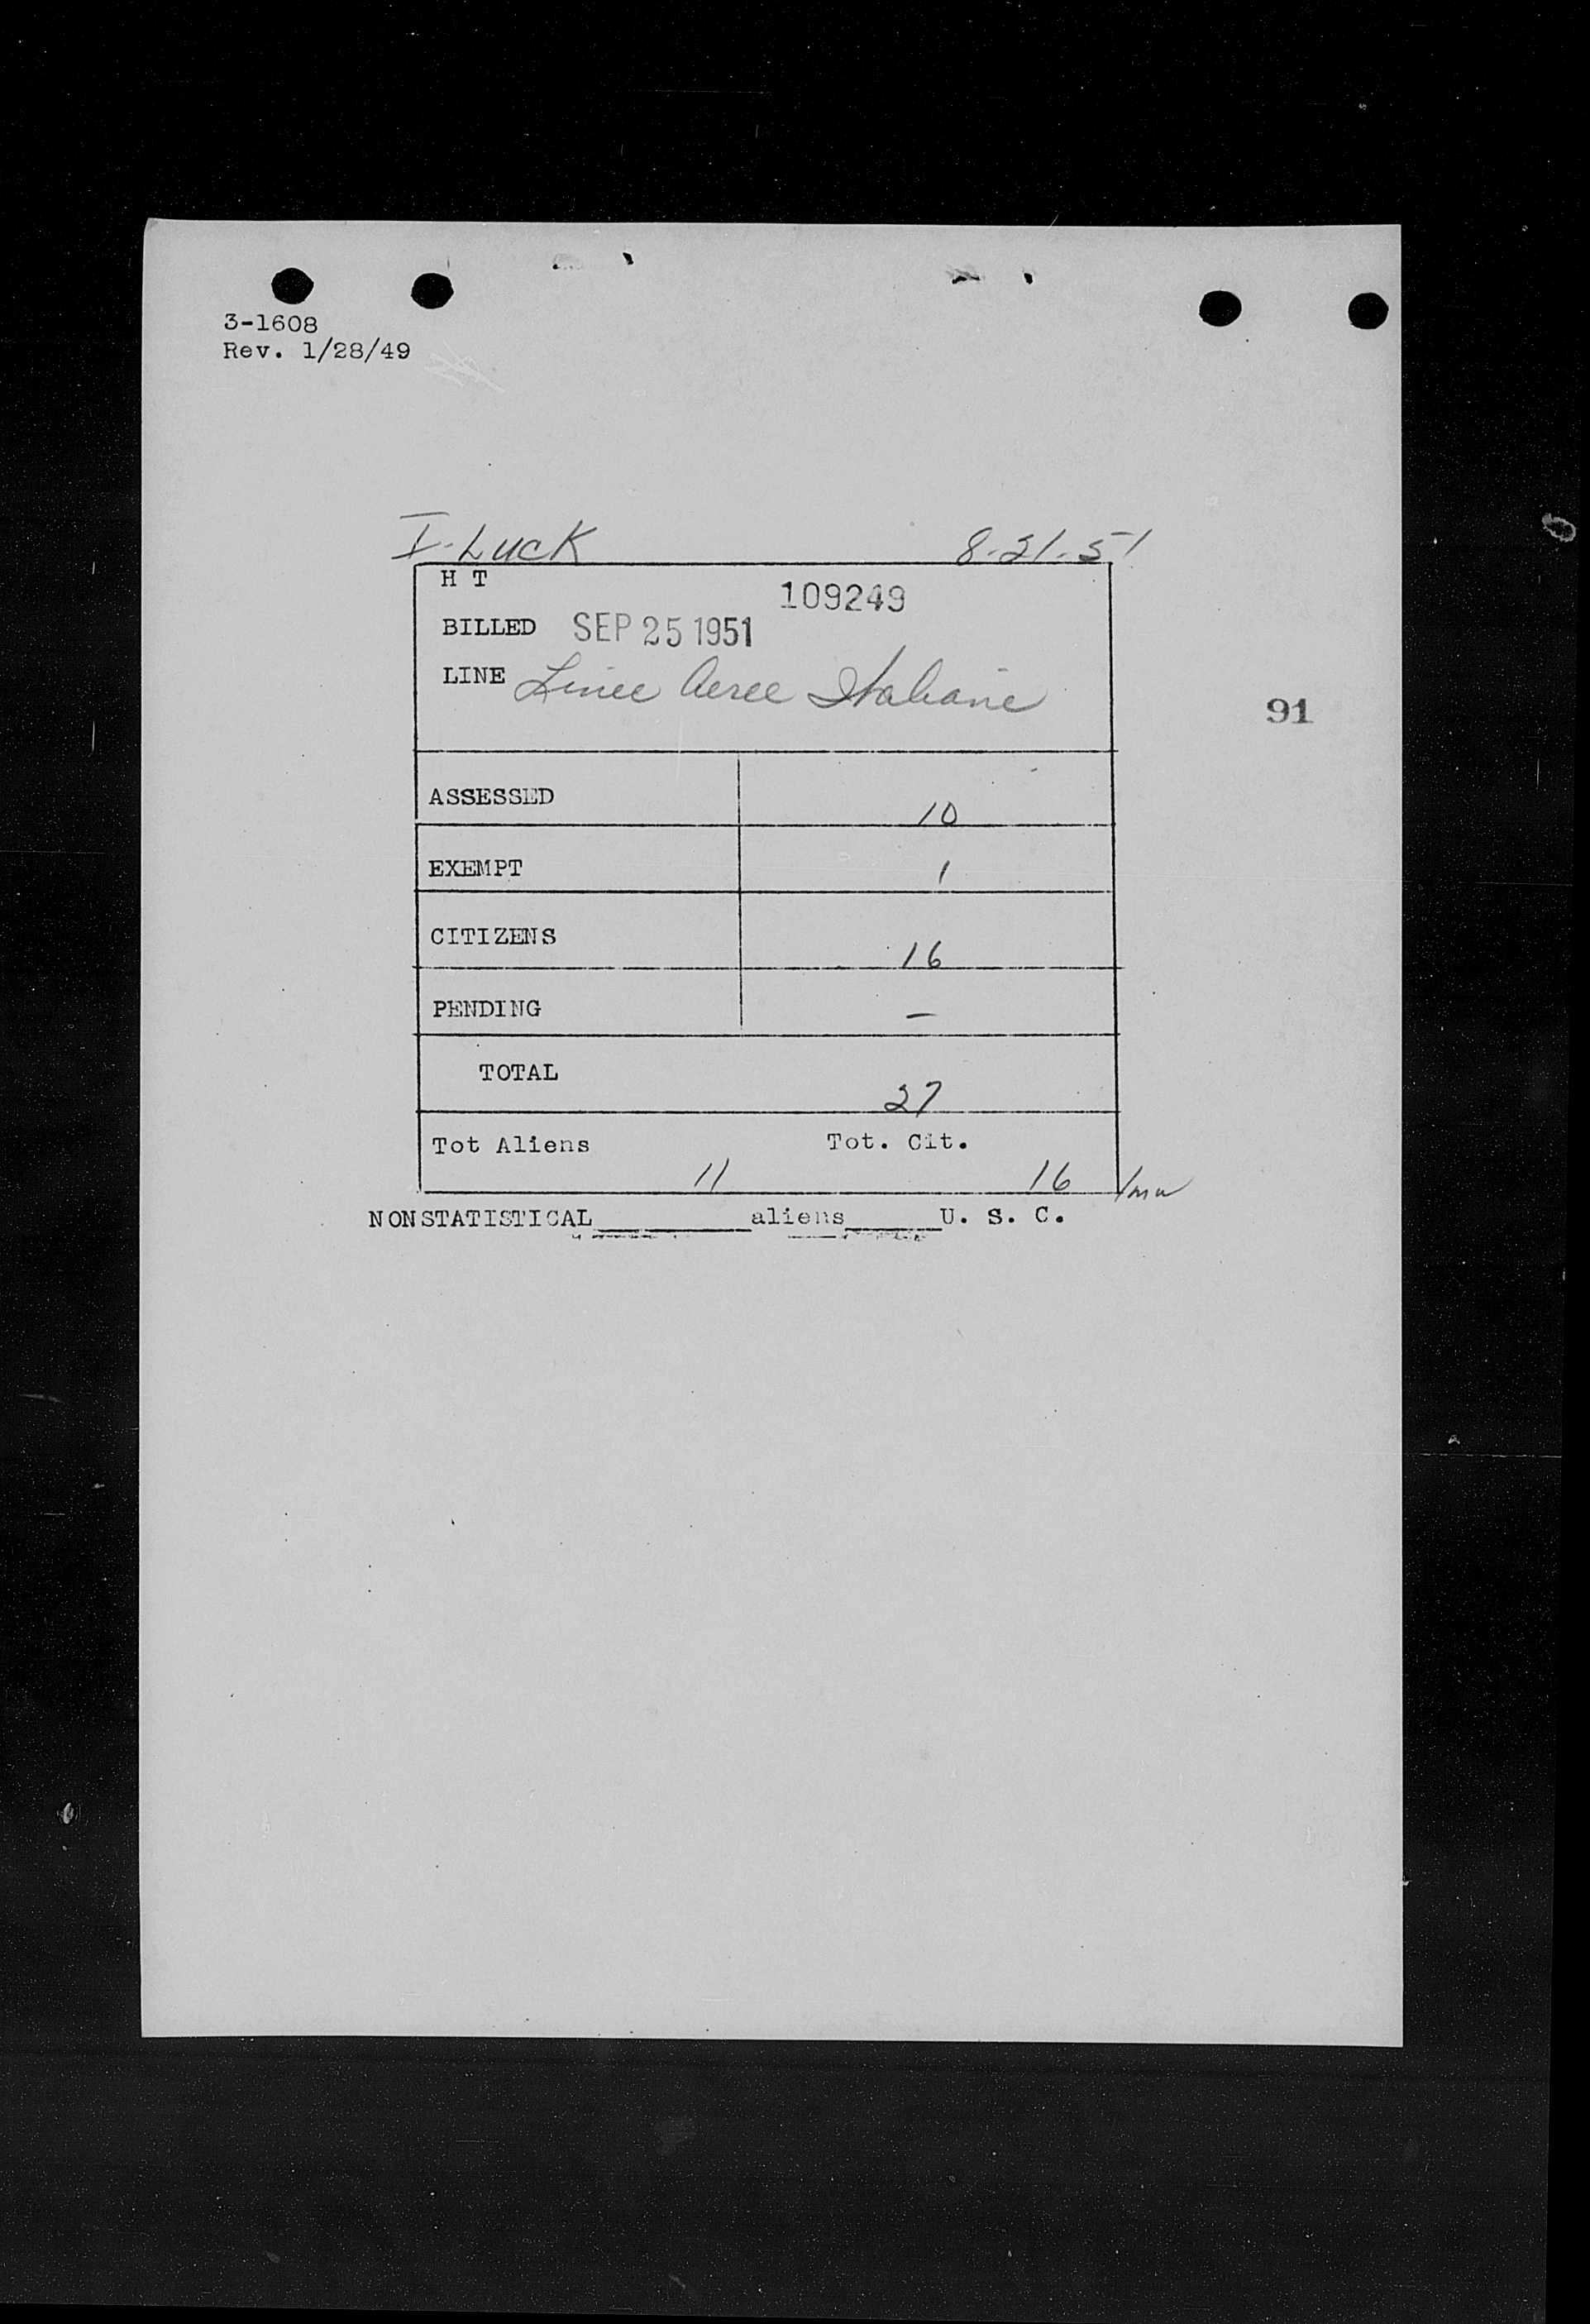 3-1608
Rev. 1/28/49
I-LUCK 8-21-51
H T
109249
BILLED SEP 25 1951
LINE Linee Aeree Italiane
91
ASSESSED 10
EXEMPT 1
CITIZENS 16
PENDING —
TOTAL 27
Tot Aliens 11 Tot. Cit. 16
NONSTATISTICAL__________aliens______U. S. C.